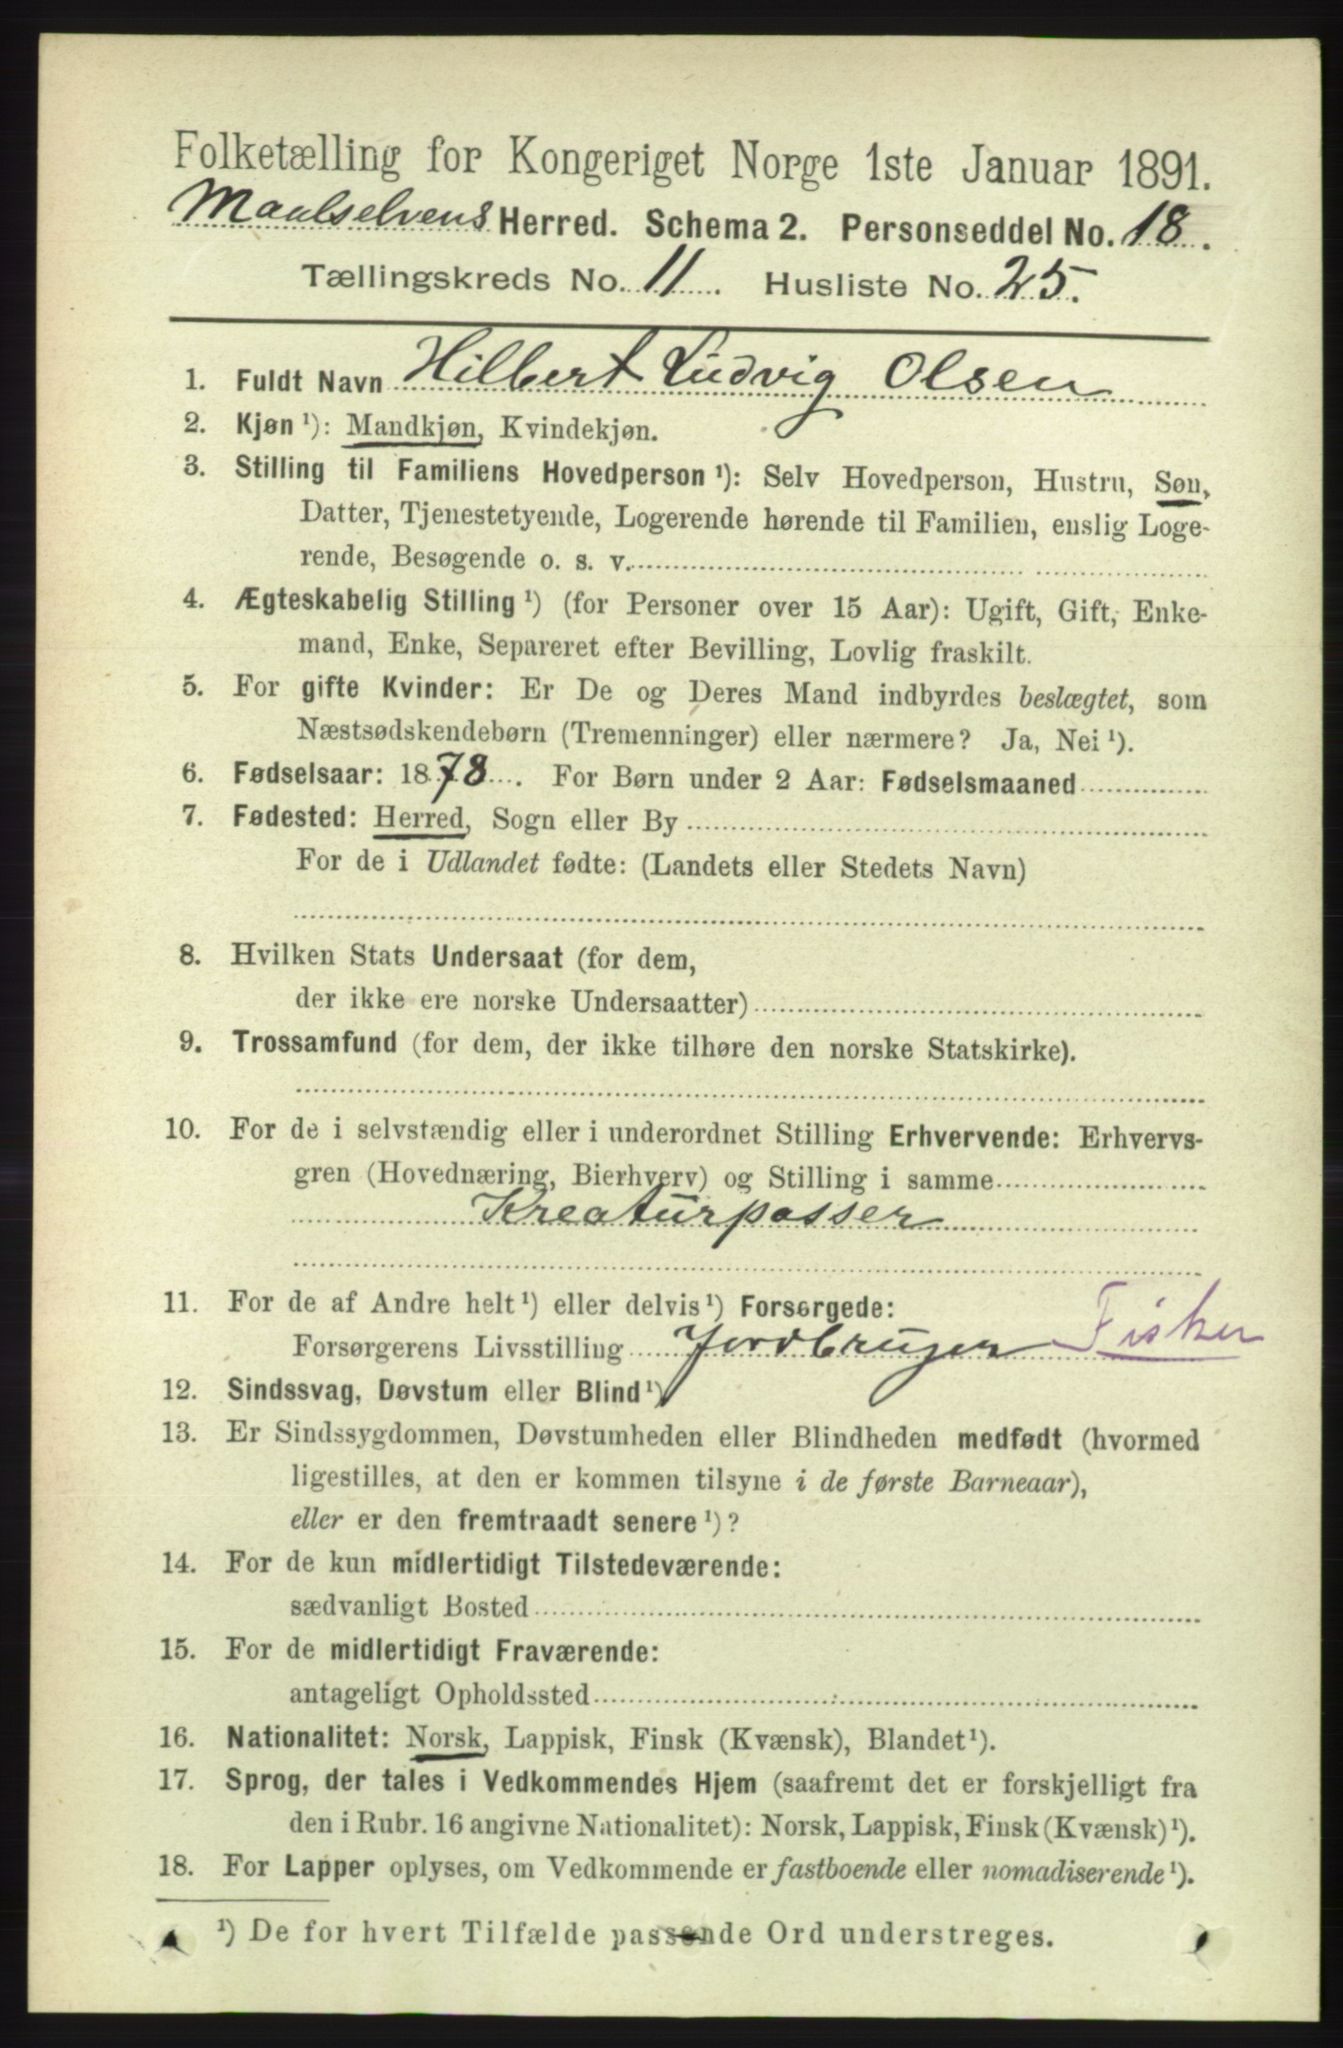 Folketælling for Kongeriget Norge 1ste Januar 1891.
Maalselvens Herred. Schema 2. Personseddel No. 18.
Tællingskreds No. 11. Husliste No. 25.
1. Fuldt Navn Hilbert Ludvig Olsen
2. Kjøn ¹): Mandkjøn, Kvindekjøn.
3. Stilling til Familiens Hovedperson ¹): Selv Hovedperson, Hustru, Søn,
Datter, Tjenestetyende, Logerende hørende til Familien, enslig Loge-
rende, Besøgende o. s. v.
4. Ægteskabelig Stilling ¹) (for Personer over 15 Aar): Ugift, Gift, Enke-
mand, Enke, Separeret efter Bevilling, Lovlig fraskilt.
5. For gifte Kvinder: Er De og Deres Mand indbyrdes beslægtet, som
Næstsødskendebørn (Tremenninger) eller nærmere? Ja, Nei ¹).
6. Fødselsaar: 1878. For Børn under 2 Aar: Fødselsmaaned
7. Fødested: Herred, Sogn eller By
For de i Udlandet fødte: (Landets eller Stedets Navn)
8. Hvilken Stats Undersaat (for dem,
der ikke ere norske Undersaatter)
9. Trossamfund (for dem, der ikke tilhøre den norske Statskirke).
10. For de i selvstændig eller i underordnet Stilling Erhvervende: Erhvervs-
gren (Hovednæring, Bierhverv) og Stilling i samme
Kreaturpasser
11. For de af Andre helt ¹) eller delvis ¹) Forsørgede:
Forsørgerens Livsstilling Jordbruger Fisker
12. Sindssvag, Døvstum eller Blind ¹)
13. Er Sindssygdommen, Døvstumheden eller Blindheden medfødt (hvormed
ligestilles, at den er kommen tilsyne i de første Barneaar),
eller er den fremtraadt senere ¹)?
14. For de kun midlertidigt Tilstedeværende:
sædvanligt Bosted
15. For de midlertidigt Fraværende:
antageligt Opholdssted
16. Nationalitet: Norsk, Lappisk, Finsk (Kvænsk), Blandet ¹).
17. Sprog, der tales i Vedkommendes Hjem (saafremt det er forskjelligt fra
den i Rubr. 16 angivne Nationalitet): Norsk, Lappisk, Finsk (Kvænsk) ¹).
18. For Lapper oplyses, om Vedkommende er fastboende eller nomadiserende ¹).
¹) De for hvert Tilfælde passende Ord understreges.